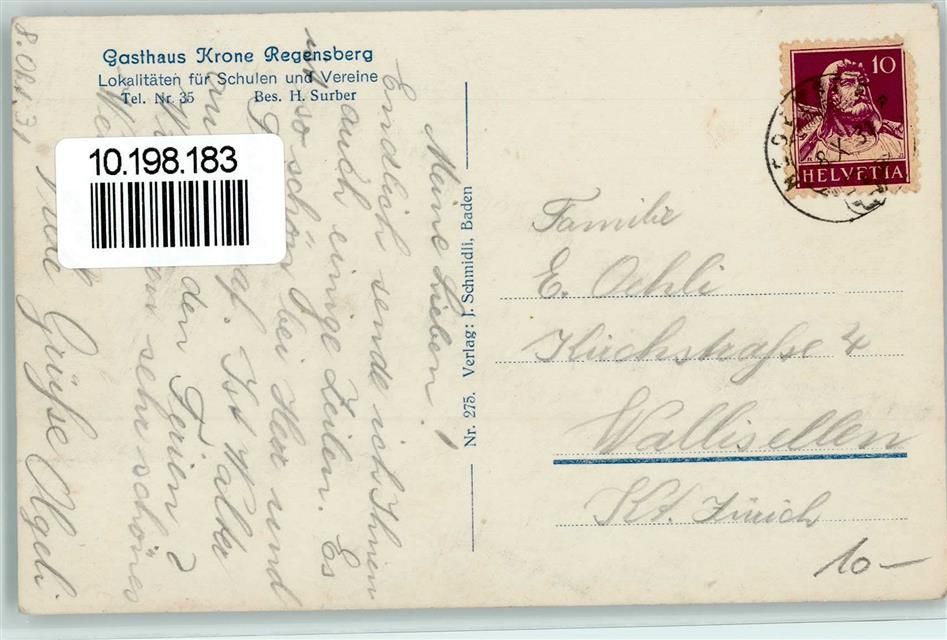 Gasthaus Krone Regensberg
Lokalitäten für Schulen und Vereine
Tel. Nr. 35 Bes. H. Surber
8. Okt. 31
10.198.183
Meine Lieben!
Endlich sende ich Ihnen
auch einige Zeilen. Es
ist so schön bei Herr und
Ist Walter
in den Ferien?
sehr schönes
Viele Grüße
Nr. 275. Verlag: J. Schmidli, Baden
10
HELVETIA
Familie
E. Oehli
Kirchstraße 4
Wallisellen
Kt. Zürich
10-